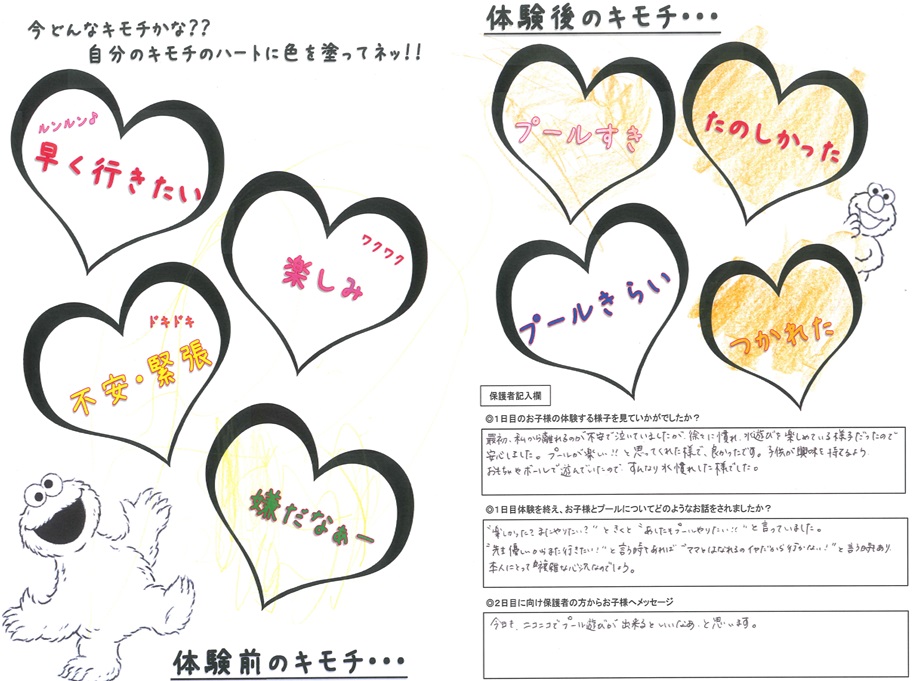 今どんなキモチかな??
自分のキモチのハートに色を塗ってネッ!!
ルンルン♪
早く行きたい
ワクワク
楽しみ
ドキドキ
不安・緊張
嫌だなぁー
体験前のキモチ・・・
体験後のキモチ・・・
プールすき
たのしかった
プールきらい
つかれた
保護者記入欄
◎1日目のお子様の体験する様子を見ていかがでしたか？
最初、私から離れるのが不安で泣いていましたが、徐々に慣れ、水遊びを楽しめている様子だったので
安心しました。プールが楽しい!!と思ってくれた様で、良かったです。子供が興味を持てるよう
おもちゃやボールで遊んでいたので、すんなり水慣れした様でした。
◎1日目体験を終え、お子様とプールについてどのようなお話をされましたか？
"楽しかった？またやりたい？"ときくと"あしたもプールやりたい!!"と言っていました。
"先生優しいからまた行きたい!"と言う時であれば"ママとはなれるのイヤだから行かない!"と言う時あり、
本人にとって複雑な心境なのでしょう。
◎2日目に向け保護者の方からお子様へメッセージ
今日も、ニコニコでプール遊びが出来るといいなあ、と思います。